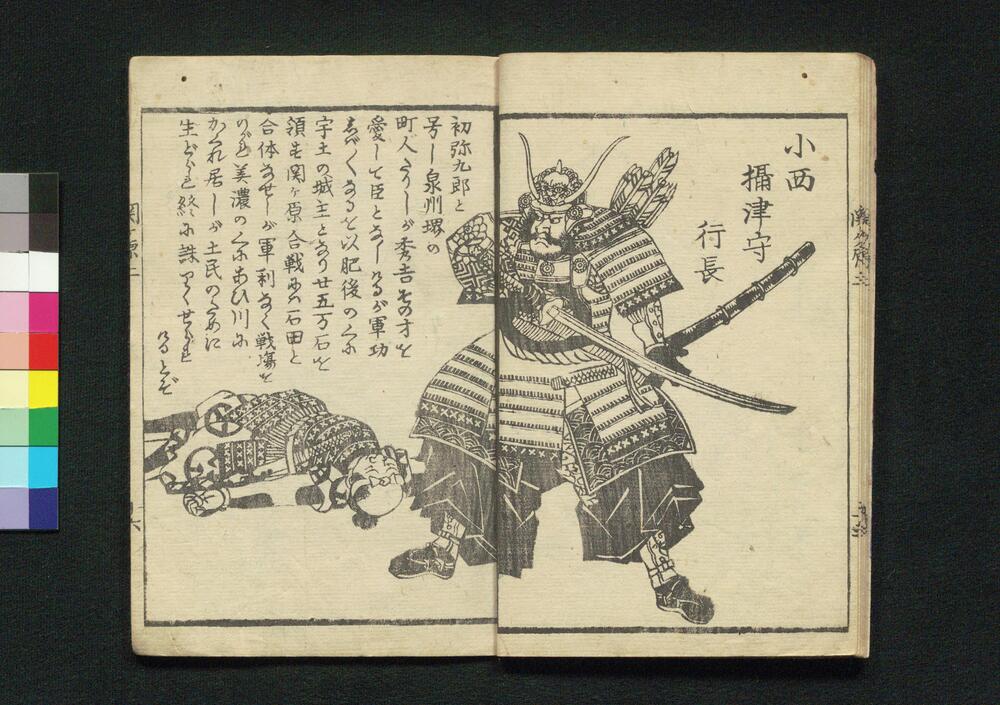 小西
攝津守
行長
初弥九郎と
号し泉州堺の
町人なりしが秀吉その才を
愛して臣となしけるが軍功
あるを以肥後のくに
宇土の城主となり廿五万石を
領す関ヶ原合戦の石田と
合体なせしが軍利なく戦場を
のがれ美濃のくに川に
かくれ居しが土民のために
生どられ終に誅せられ
けるとぞ